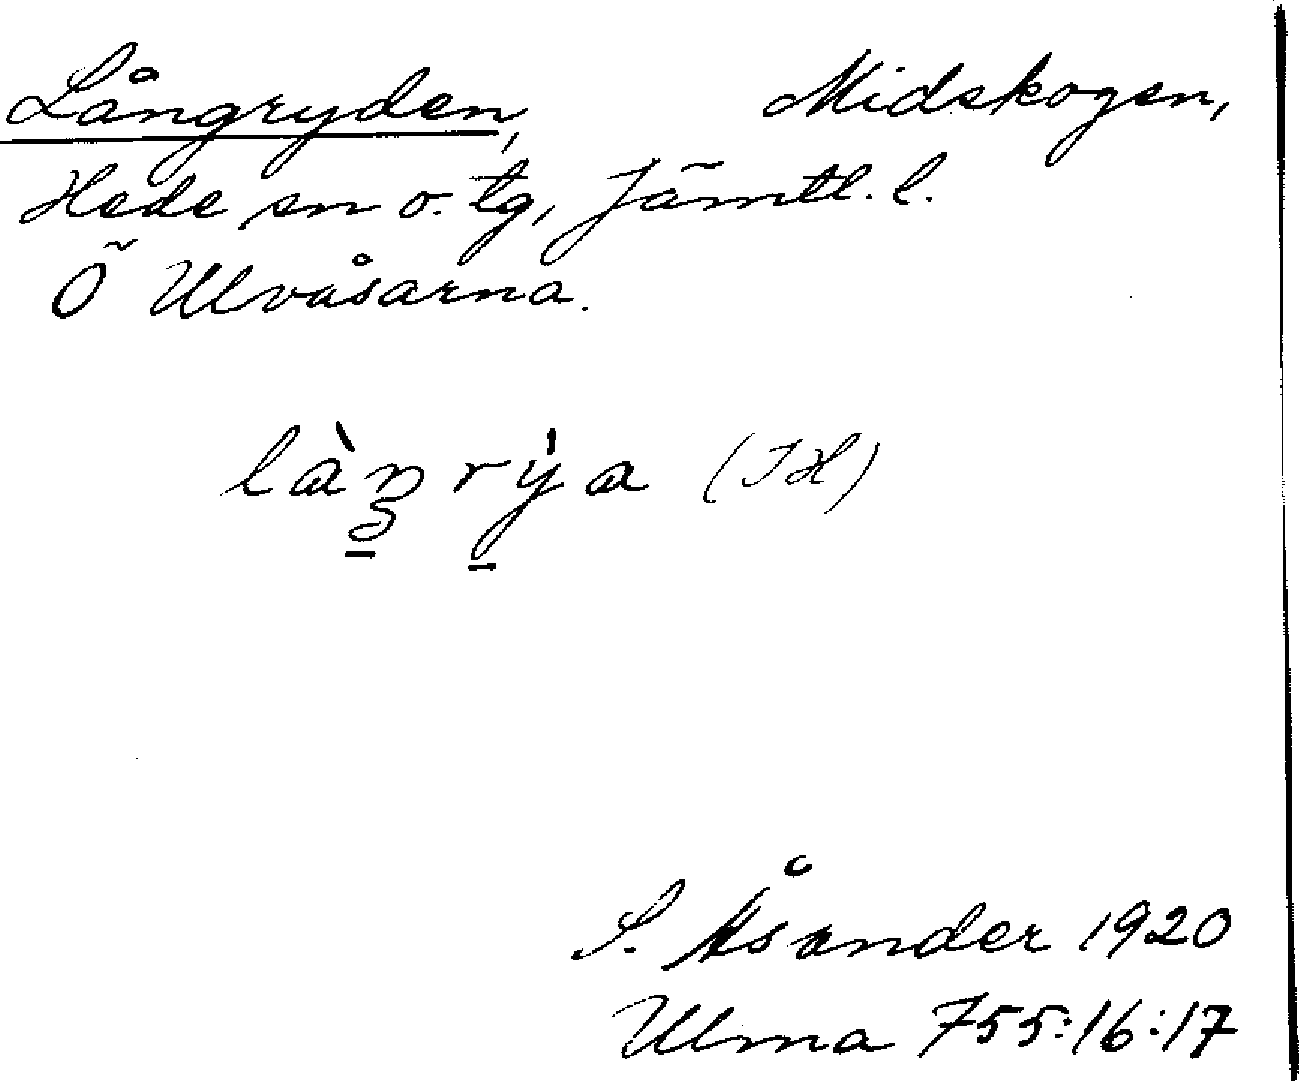 Långryden, Midskogen,
Hede sn o. tg, Jämtl. l.
Ö Ulvåsarna.
làŋrỳa (JH)
S. Åsander 1920
Ulma 755:16:17